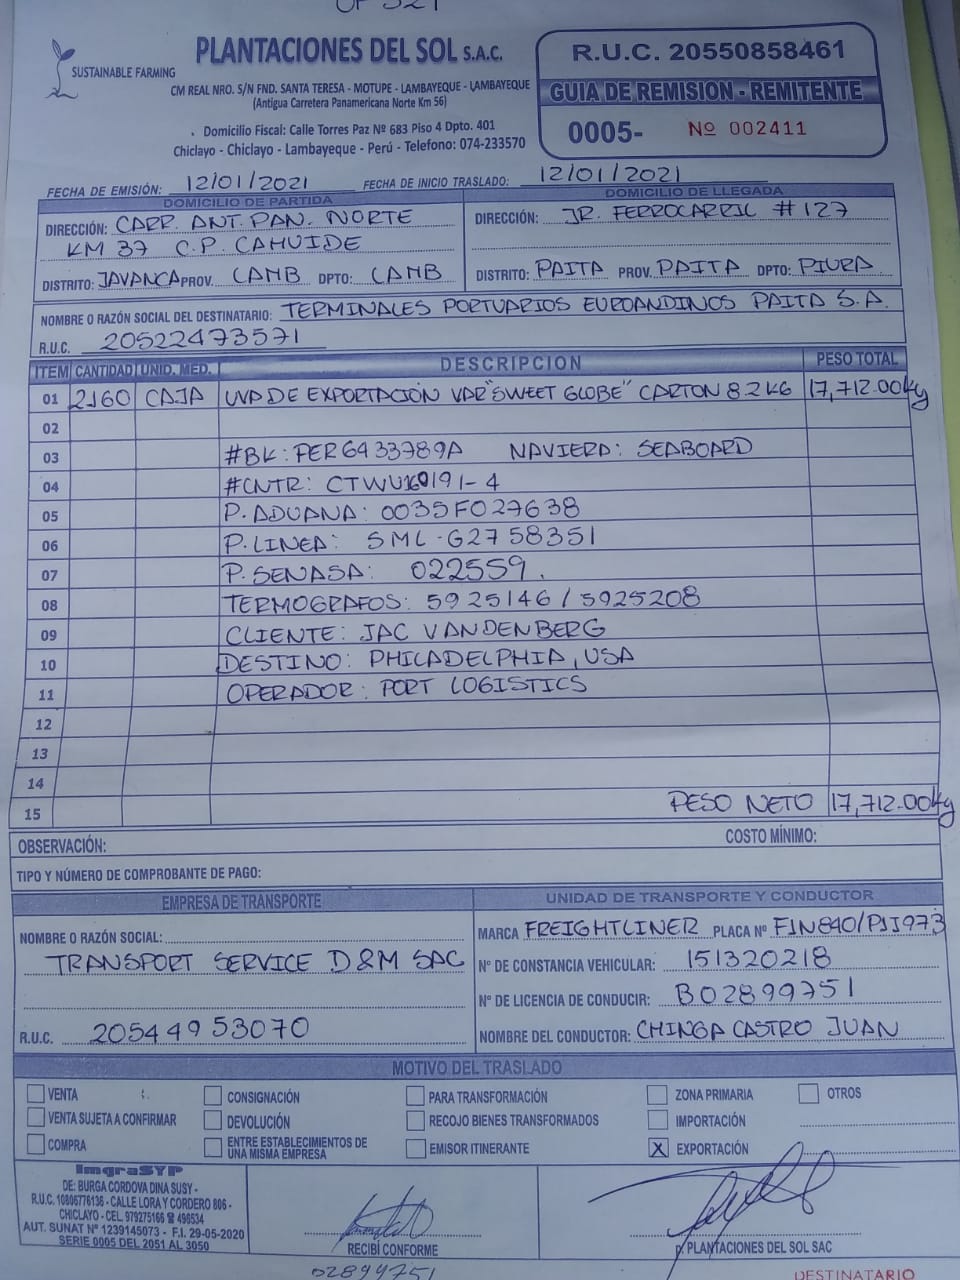 OP 321
SUSTAINABLE FARMING
PLANTACIONES DEL SOL S.A.C.
CM REAL NRO. S/N FND. SANTA TERESA - MOTUPE - LAMBAYEQUE - LAMBAYEQUE
(Antigua Carretera Panamericana Norte Km 56)
Domicilio Fiscal: Calle Torres Paz Nº 683 Piso 4 Dpto. 401
Chiclayo - Chiclayo - Lambayeque - Perú - Telefono: 074-233570
R.U.C. 20550858461
GUIA DE REMISION - REMITENTE
0005- Nº 002411
FECHA DE EMISIÓN: 12/01/2021 FECHA DE INICIO TRASLADO: 12/01/2021
DOMICILIO DE PARTIDA
DIRECCIÓN: CARR. ANT. PAN. NORTE
KM 37 C.P. CAHUIDE
DISTRITO: JAYANCA PROV. LAMB DPTO: LAMB
DOMICILIO DE LLEGADA
DIRECCIÓN: JR. FERROCARRIL # 127
DISTRITO: PAITA PROV. PAITA DPTO: PIURA
NOMBRE O RAZÓN SOCIAL DEL DESTINATARIO: TERMINALES PORTUARIOS EUROANDINOS PAITA S.A.
R.U.C. 20522473571
ITEM CANTIDAD UNID. MED. DESCRIPCION PESO TOTAL
01 2160 CAJA UVA DE EXPORTACIÓN VAR "SWEET GLOBE" CARTON 8.2 KG 17,712.00kg
02
03 #BK: PER6433789A NAVIERA: SEABOARD
04 #CNTR: 191-4
05 P. ADUANA: 0035F027638
06 P. LINEA: SML-G2758351
07 P. SENASA: 022559.
08 TERMOGRAFOS: 5925146 / 5925208
09 CLIENTE: JAC VANDENBERG
10 DESTINO: PHILADELPHIA, USA
11 OPERADOR: PORT LOGISTICS
12
13
14
15 PESO NETO 17,712.00kg
OBSERVACIÓN: COSTO MÍNIMO:
TIPO Y NÚMERO DE COMPROBANTE DE PAGO:
EMPRESA DE TRANSPORTE
NOMBRE O RAZÓN SOCIAL:
TRANSPORT SERVICE D&M SAC
R.U.C. 20544953070
UNIDAD DE TRANSPORTE Y CONDUCTOR
MARCA FREIGHTLINER PLACA Nº F1N840/PJJ973
Nº DE CONSTANCIA VEHICULAR: 151320218
Nº DE LICENCIA DE CONDUCIR: B02899751
NOMBRE DEL CONDUCTOR: CHINGA CASTRO JUAN
MOTIVO DEL TRASLADO
VENTA CONSIGNACIÓN PARA TRANSFORMACIÓN ZONA PRIMARIA OTROS
VENTA SUJETA A CONFIRMAR DEVOLUCIÓN RECOJO BIENES TRANSFORMADOS IMPORTACIÓN
COMPRA ENTRE ESTABLECIMIENTOS DE UNA MISMA EMPRESA EMISOR ITINERANTE X EXPORTACIÓN
ImgraSYP
DE: BURGA CORDOVA DINA SUSY -
R.U.C. 10806776136 - CALLE LORA Y CORDERO 806 -
CHICLAYO - CEL. 979275166 ☎ 496534
AUT. SUNAT Nº 1239145073 - F.I. 29-05-2020
SERIE 0005 DEL 2051 AL 3050
RECIBÍ CONFORME
02899751
p. PLANTACIONES DEL SOL SAC
DESTINATARIO